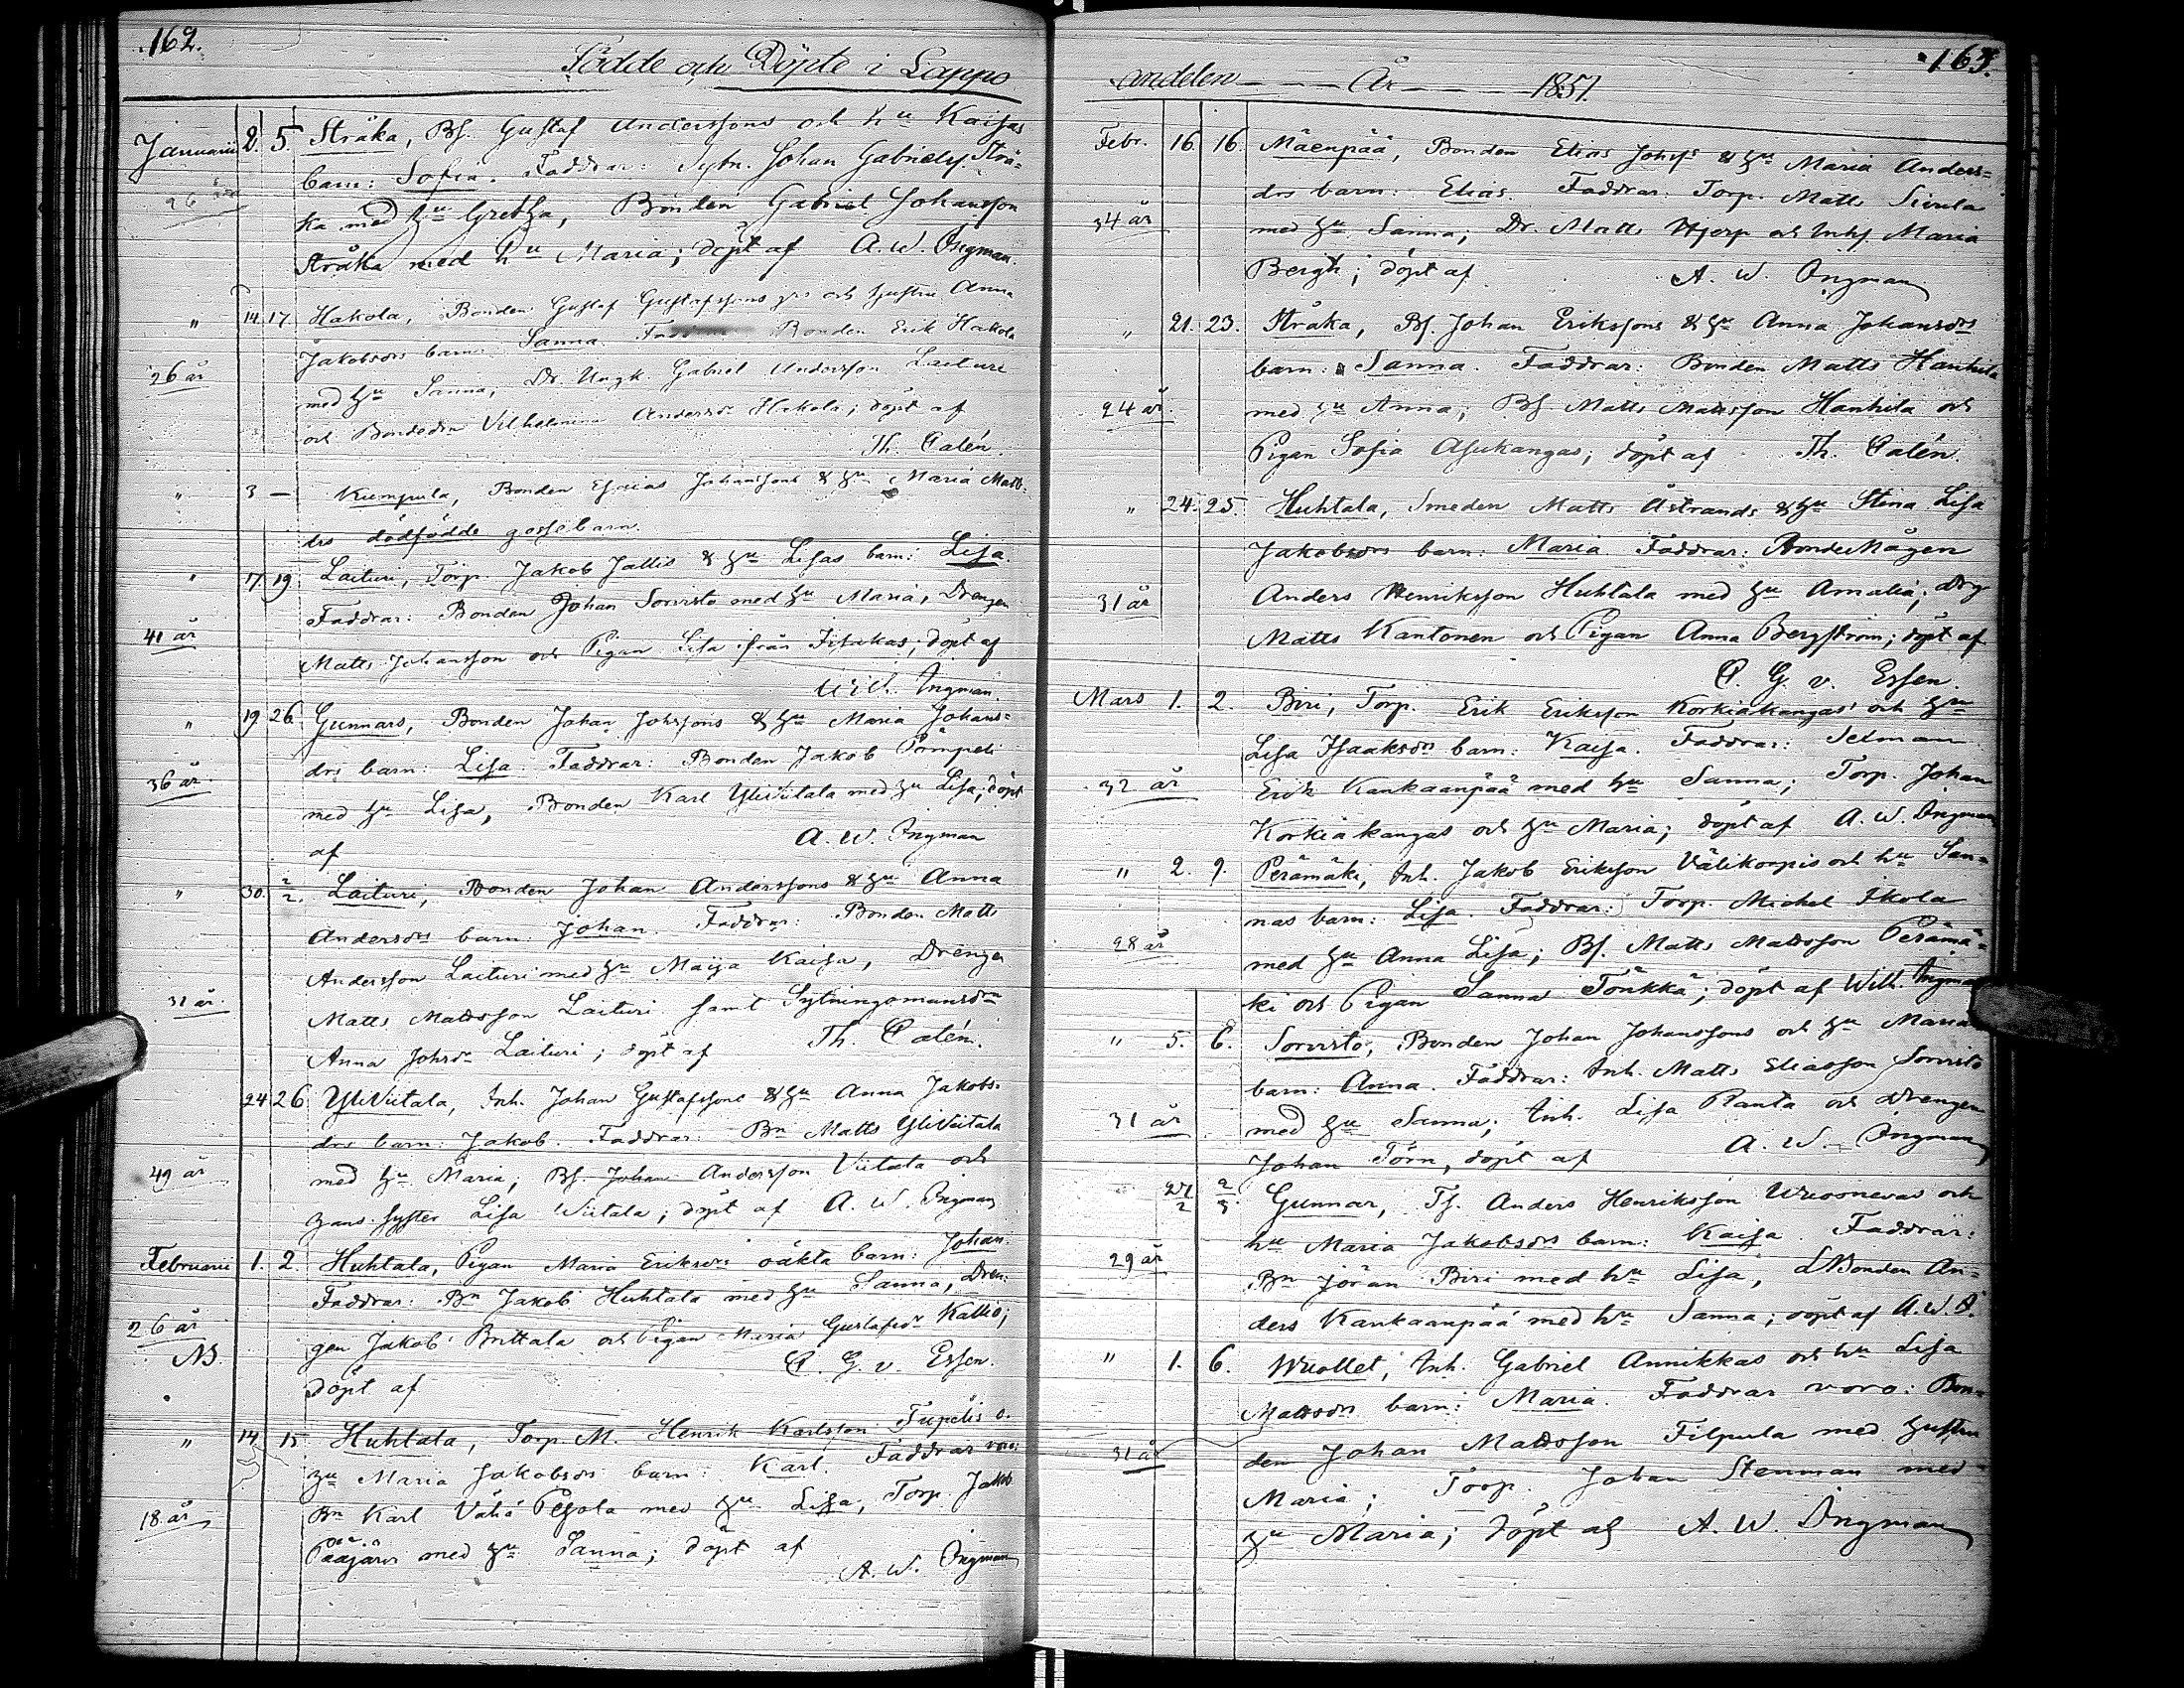 162.
Födde och Döpte i Lappo
Januarii 2. 5. Stråka, Bs. Gustaf Anderssons och hu Kaisas
barn: Sofia. Faddrar: Sytn. Johan Gabrielss. Strå-
26 år
ka med hu Gretha, Bonden Gabriel Johansson
Stråka med hu Maria; döpt af A. W. Ingman.
" 14 17 Hakola, Bonden Gustaf Gustafssons och hustru Anna
Jakobsdrs barn: Sanna. Bonden Erik Hakola
26 år
med hu Sanna; Dr. Ungk. Gabriel Andersson Laituri
och Bondedr Vilhelmina Andersdr Hakola; döpt af
Th. Calén.
" 3 — Kumpula, Bonden Esaias Johanssons & hu Maria Matts-
drs dödfödde gossebarn.
" 17 19 Laituri, Torp. Jakob Jallis & hu Lisas barn: Lisa.
Faddrar: Bonden Johan Sorvisto med hu Maria, Drengen
41 år
Matts Johansson och Pigan Lisa från ; döpt af
Wilh. Ingman.
" 19 26. Gunnars, Bonden Johan Johssons & hu Maria Johans-
drs barn: Lisa. Faddrar: Bonden Jakob Pömpeli
36 år.
med hu Lisa, Bonden Karl YliViitala med hu Lisa; döpt
af A. W. Ingman
" 30. 2/2. Laituri, Bonden Johan Anderssons & hu Anna
Andersdrs barn: Johan. Faddrar: Bonden Matts
Andersson Laituri med hu Maija Kaisa, Drengen
31 år.
Matts Mattsson Laituri samt Sytningsmansdrn
Anna Johsdr Laituri; döpt af Th. Calén.
24 26 YliViitala, Inh. Johan Gustafssons & hu Anna Jakobs-
drs barn: Jakob. Faddrar: Bn Matts YliViitala
49 år
med hu Maria; Bs. Johan Andersson Viitala och
hans syster Lisa Viitala; döpt af A. W. Ingman
Februarii 1. 2. Huhtala, Pigan Maria Eriksdrs oäkta barn: Johan.
Faddrar: Bn Jakob Huhtala med hu Sanna, Dren-
26 år
gen Jakob Prittala och Pigan Maria Gustafsdr Kallio;
NB.
döpt af C. G. v. Essen.
" 14 15 Huhtala, Torp. M. Henrik Karlsson Tupelis o.
hu Maria Jakobsdrs barn: Karl. Faddrar voro:
Bn Karl Vähä Pesola med hu Lisa, Torp. Jakob
18 år
Pääjärvi med hu Sanna; döpt af
A. W. Ingman
163.
andelen - - - År - - - - 1851.
Febr. 16 16. Mäenpää, Bonden Elias Johss & hu Maria Anders-
drs barn: Elias. Faddrar: Torp. Matts Sivula
34 år
med hu Sanna; Dr. Matts Hjerp och Inhs. Maria
Bergh; döpt af A. W. Ingman
" 21. 23. Stråka, Bs. Johan Erikssons & hu Anna Johansdrs
barn: Sanna. Faddrar: Bonden Matts Hanhila
24 år.
med hu Anna; Bs. Matts Mattsson Hanhila och
Pigan Sofia Asukangas; döpt af Th. Calén.
" 24. 25. Huhtala, Smeden Matts Åstrands & hu Stina Lisa
Jakobsdrs barn: Maria. Faddrar: BondeMågen
31 år
Anders Henriksson Huhtala med hu Amalia; drg
Matts Kantonen och Pigan Anna Bergström; döpt af
C. G. v. Essen.
Mars 1. 2. Biri, Torp. Erik Eriksson Korkiakangas' och hu
Lisa Isaaksdrs barn: Kaisa. Faddrar: Sexman
32 år
Erik Kankaanpää med hu Sanna; Torp. Johan
Korkiakangas och hu Maria; döpt af A. W. Ingman
" 2. 9. Perämäki, Inh. Jakob Eriksson Välikorpis och hu San-
nas barn: Lisa. Faddrar: Torp. Michel Ikola
28 år
med hu Anna Lisa; Bs. Matts Mattsson Perämä-
ki och Pigan Sanna Tönkkä; döpt af Wilh. Ingman
" 5. 6. Sorvisto, Bonden Johan Johanssons och hu Marias
barn: Anna. Faddrar: Inh. Matts Eliasson Sorvisto
31 år
med hu Sanna; Inh. Lisa Ranta och drengen
Johan Törn, döpt af A. W. Ingman
27/2 2/3. Gunnar, Ts. Anders Henriksson Wuorenevas och
hu Maria Jakobsdrs barn: Kaisa. Faddrar:
29 år
Bn Jöran Biri med hu Lisa, Bonden An-
ders Kankaanpää med hu Sanna; döpt af A. W. I.
" 1. 6. Wuollet, Inh. Gabriel Annikkas och hu Lisa
Mattsdrs barn: Maria. Faddrar voro: Bon-
31 år
den Johan Mattsson Filpula med hustru
Maria; Torp. Johan Stenman med
hu Maria; döpt af A. W. Ingman